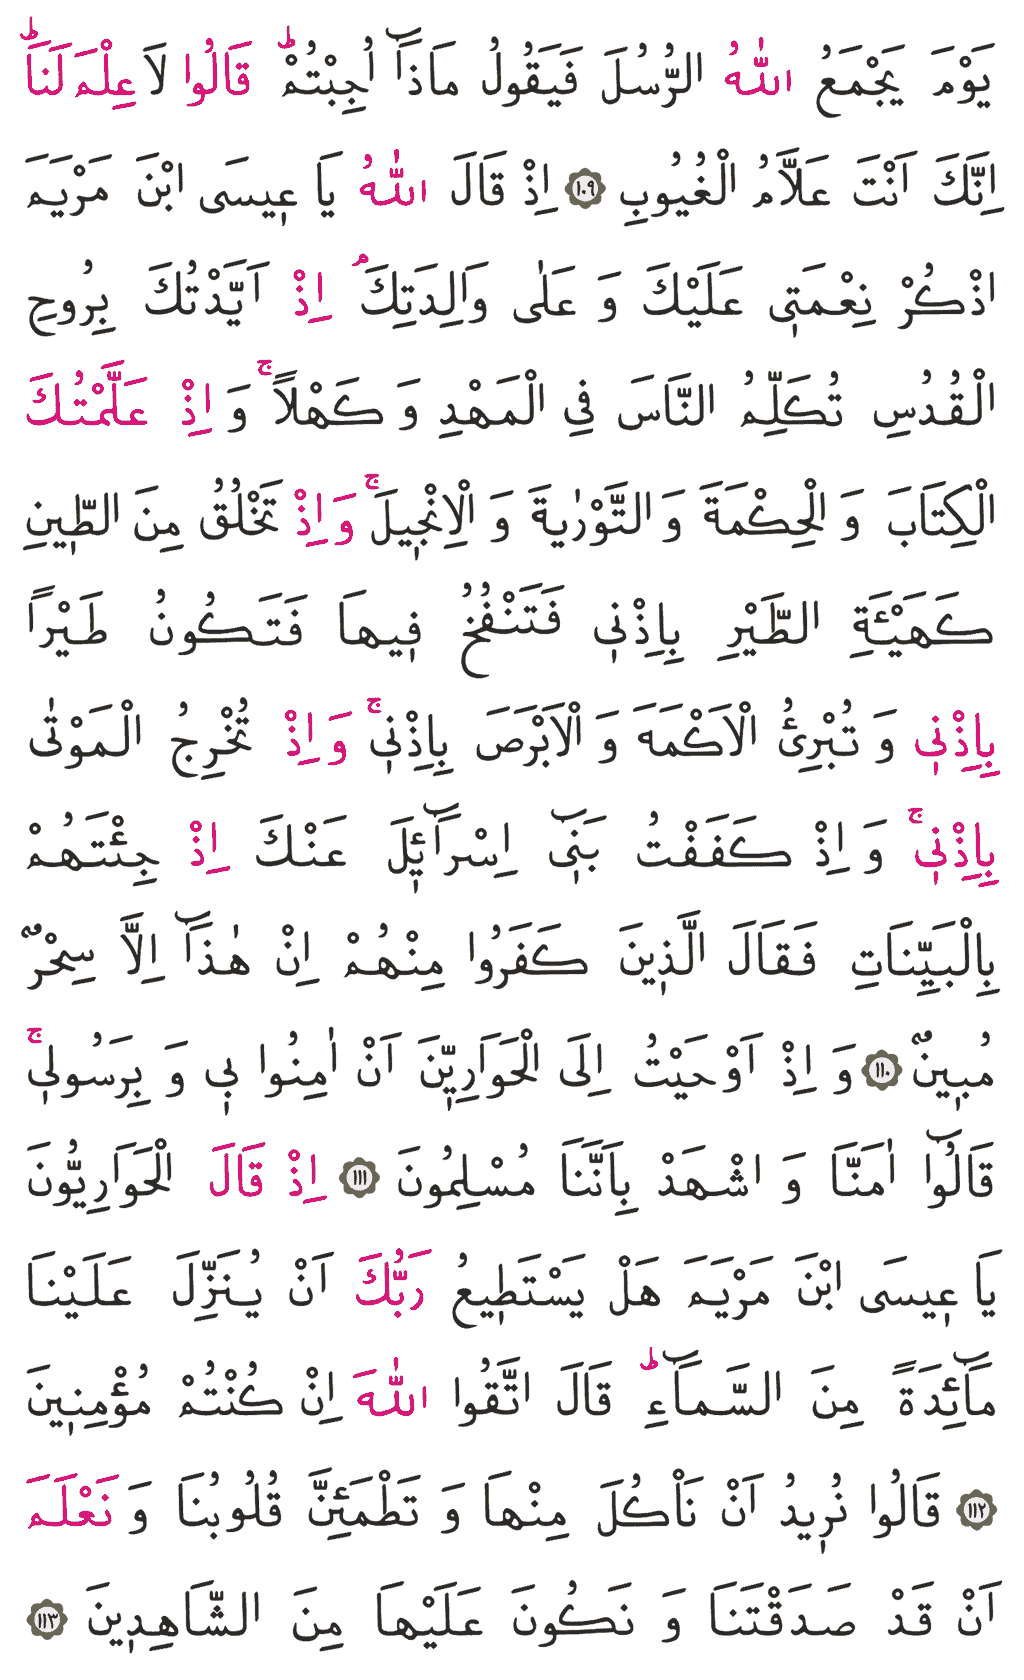 يَوْمَ يَجْمَعُ اللّٰهُ الرُّسُلَ فَيَقُولُ مَاذَٓا اُجِبْتُمْۜ قَالُوا لَا عِلْمَ لَنَاۜ
اِنَّكَ اَنْتَ عَلَّامُ الْغُيُوبِ ﴿١٠٩﴾ اِذْ قَالَ اللّٰهُ يَا ع۪يسَى ابْنَ مَرْيَمَ
اذْكُرْ نِعْمَت۪ي عَلَيْكَ وَ عَلٰى وَالِدَتِكَۢ اِذْ اَيَّدْتُكَ بِرُوحِ
الْقُدُسِ تُكَلِّمُ النَّاسَ فِي الْمَهْدِ وَ كَهْلًاۚ وَ اِذْ عَلَّمْتُكَ
الْكِتَابَ وَ الْحِكْمَةَ وَ التَّوْرٰيةَ وَ الْاِنْج۪يلَۚ وَ اِذْ تَخْلُقُ مِنَ الطّ۪ينِ
كَهَيْـَٔةِ الطَّيْرِ بِاِذْن۪ي فَتَنْفُخُ ف۪يهَا فَتَكُونُ طَيْرًا
بِاِذْن۪ي وَ تُبْرِئُ الْاَكْمَهَ وَ الْاَبْرَصَ بِاِذْن۪يۚ وَ اِذْ تُخْرِجُ الْمَوْتٰى
بِاِذْن۪يۚ وَ اِذْ كَفَفْتُ بَن۪ٓي اِسْرَٓائ۪لَ عَنْكَ اِذْ جِئْتَهُمْ
بِالْبَيِّنَاتِ فَقَالَ الَّذ۪ينَ كَفَرُوا مِنْهُمْ اِنْ هٰذَٓا اِلَّا سِحْرٌ
مُب۪ينٌ ﴿١١٠﴾ وَ اِذْ اَوْحَيْتُ اِلَى الْحَوَارِيّ۪نَ اَنْ اٰمِنُوا ب۪ي وَ بِرَسُول۪يۚ
قَالُٓوا اٰمَنَّا وَ اشْهَدْ بِاَنَّنَا مُسْلِمُونَ ﴿١١١﴾ اِذْ قَالَ الْحَوَارِيُّونَ
يَا ع۪يسَى ابْنَ مَرْيَمَ هَلْ يَسْتَط۪يعُ رَبُّكَ اَنْ يُنَزِّلَ عَلَيْنَا
مَٓائِدَةً مِنَ السَّمَٓاءِۜ قَالَ اتَّقُوا اللّٰهَ اِنْ كُنْتُمْ مُؤْمِن۪ينَ
﴿١١٢﴾ قَالُوا نُر۪يدُ اَنْ نَاْكُلَ مِنْهَا وَ تَطْمَئِنَّ قُلُوبُنَا وَ نَعْلَمَ
اَنْ قَدْ صَدَقْتَنَا وَ نَكُونَ عَلَيْهَا مِنَ الشَّاهِد۪ينَ ﴿١١٣﴾